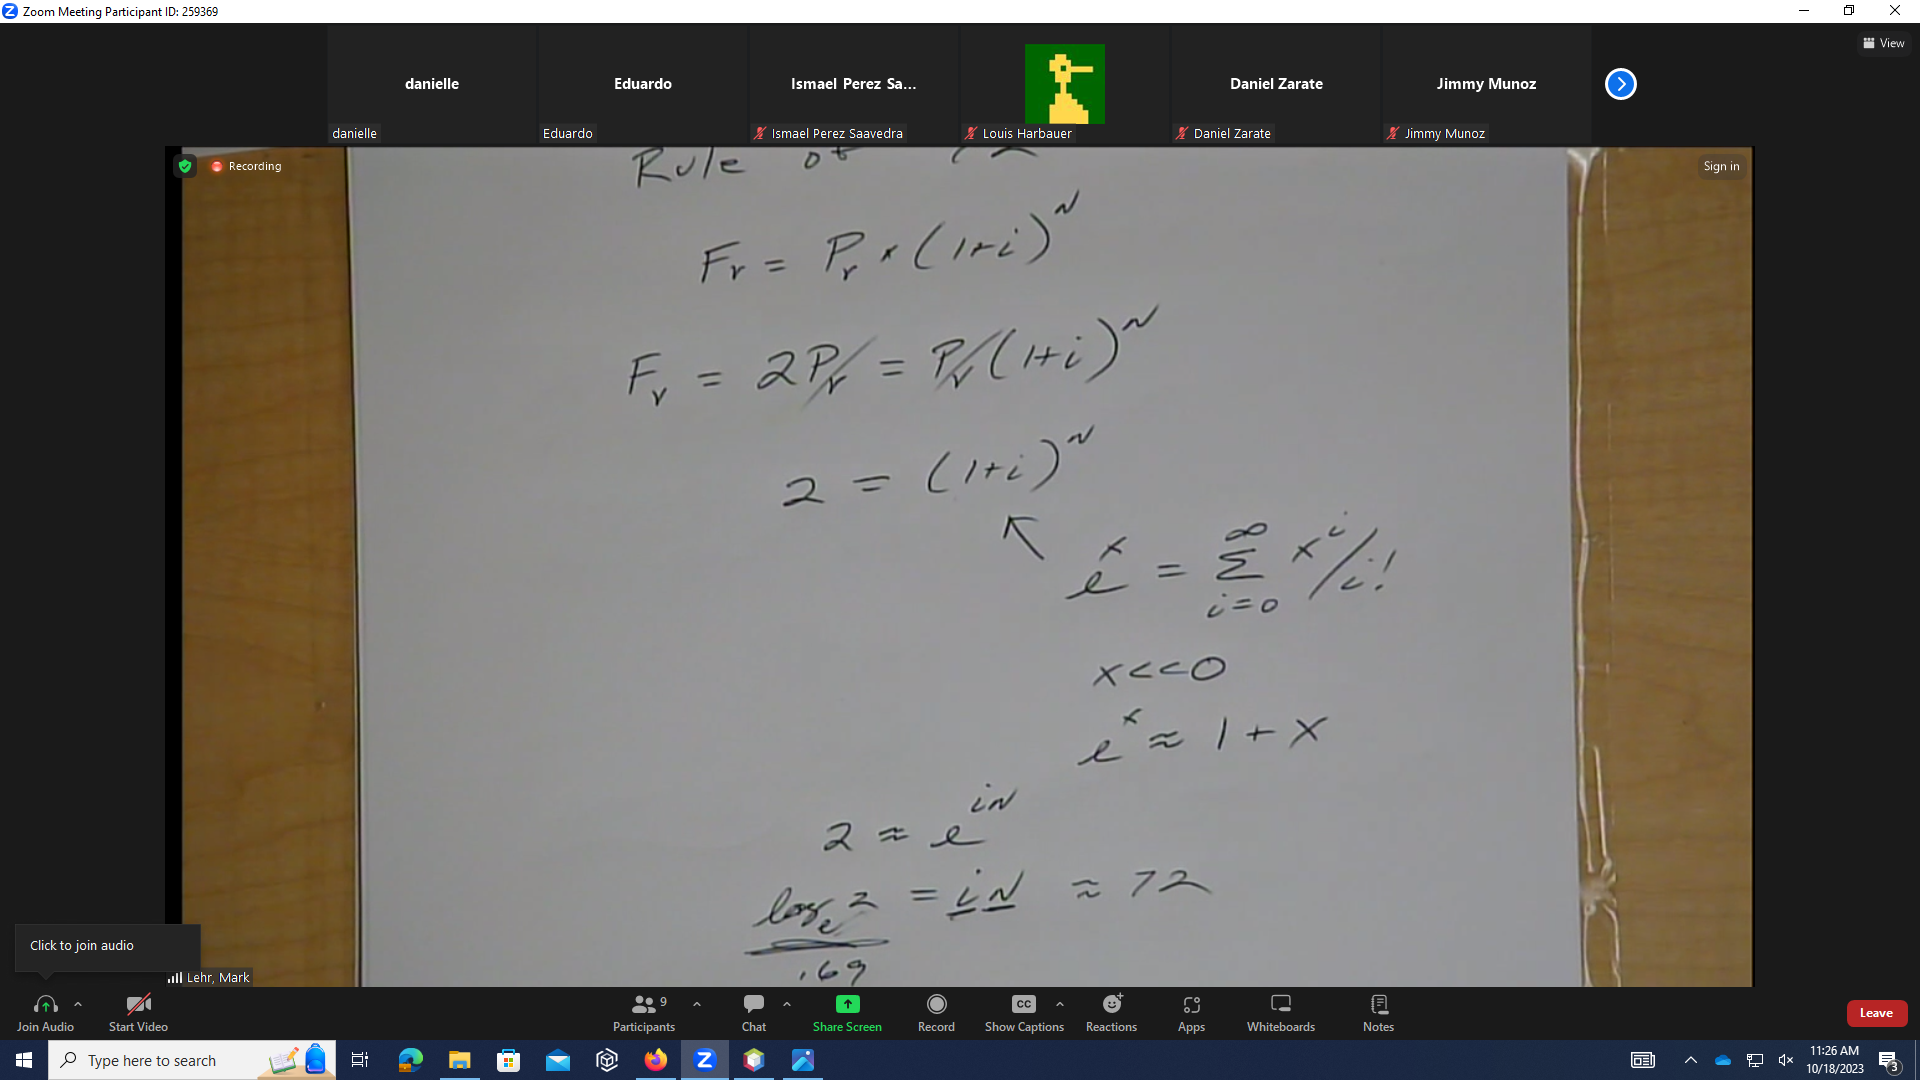 Zoom Meeting Participant ID: 259369
View
danielle
Eduardo
Ismael Perez Sa...
Daniel Zarate
Jimmy Munoz
danielle
Eduardo
Ismael Perez Saavedra
Louis Harbauer
Daniel Zarate
Jimmy Munoz
Recording
Sign in
Rule of 72
Fv = Pv × (1+i)^N
Fv = 2Pv = Pv(1+i)^N
2 = (1+i)^N
e^x = ∑ i=0 ∞ x^i/i!
x<<0
e^x ≈ 1 + x
2 ≈ e^iN
log_e 2 = iN ≈ 72
.69
Click to join audio
Lehr, Mark
Join Audio
Start Video
Participants 9
Chat
Share Screen
Record
CC
Show Captions
Reactions
Apps
Whiteboards
Notes
Leave
Type here to search
11:26 AM
10/18/2023
3